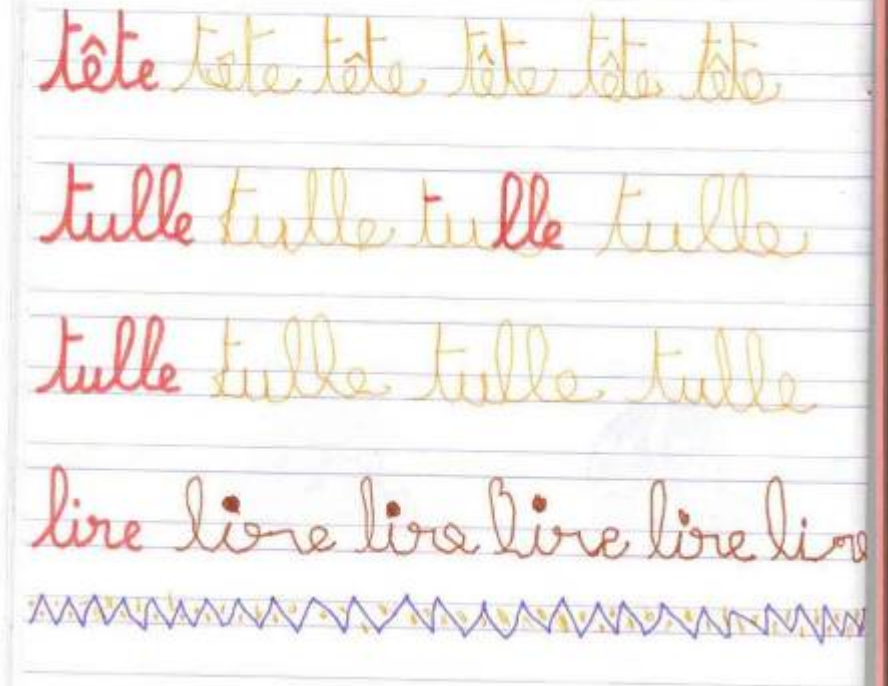 tête tête tête tête tête tête
tulle tulle tulle tulle
tulle tulle tulle tulle
lire lire lire lire lire lire